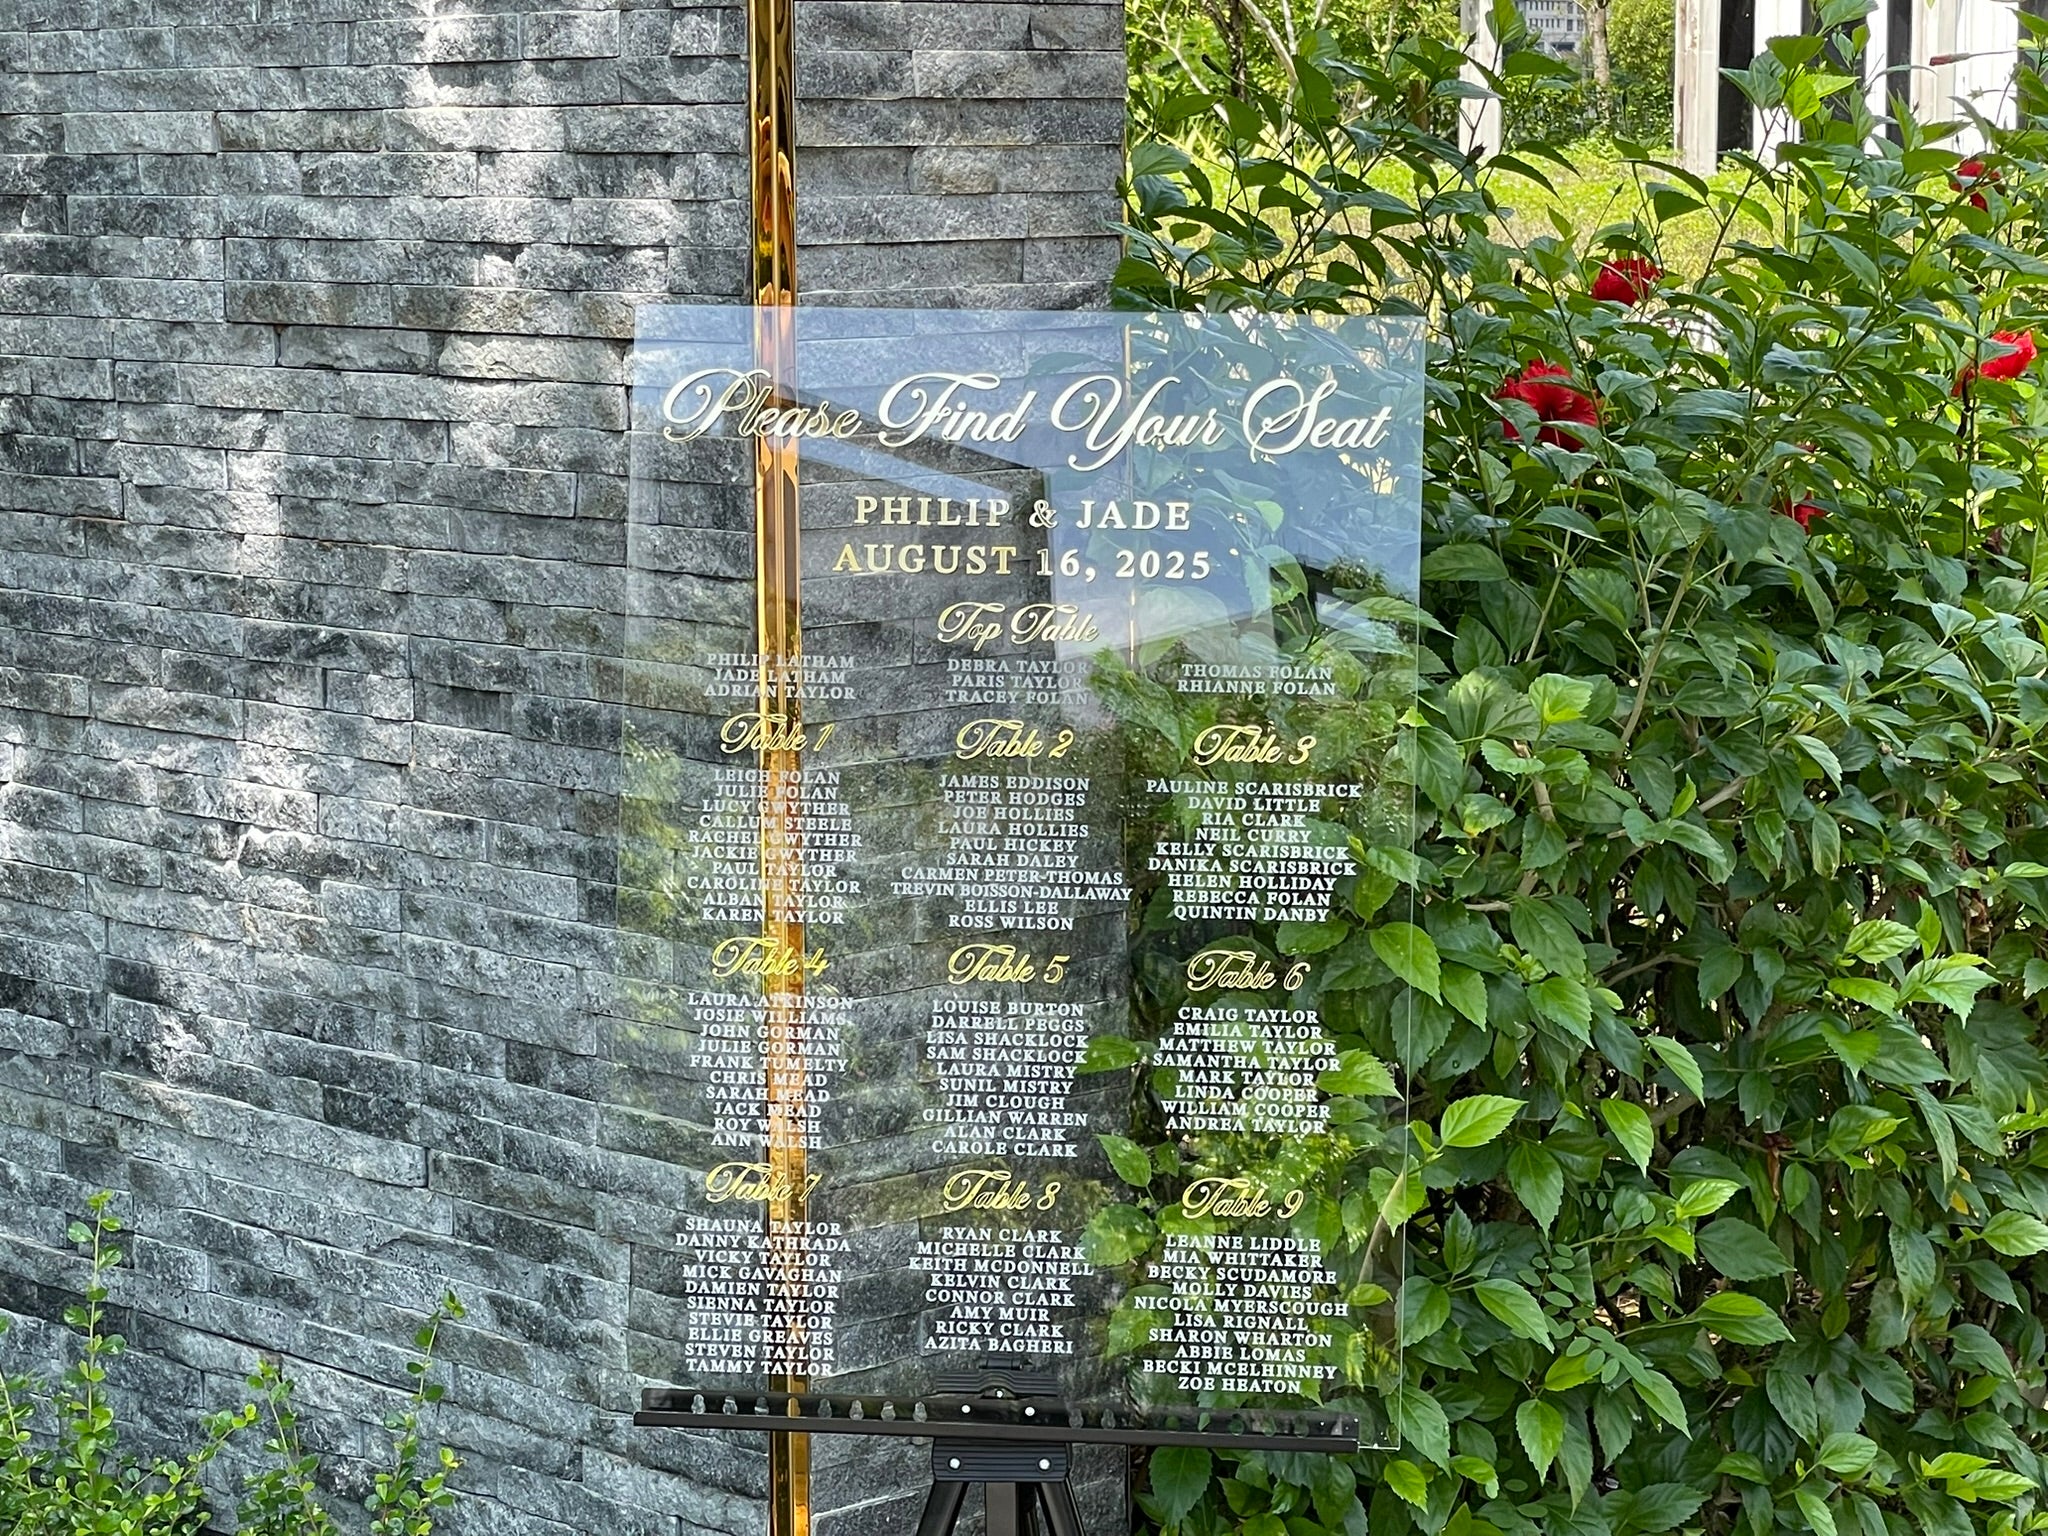 Please Find Your Seat
PHILIP & JADE
AUGUST 16, 2025
Top Table
PHILIP LATHAM
JADE LATHAM
ADRIAN TAYLOR
DEBRA TAYLOR
PARIS TAYLOR
TRACEY FOLAN
THOMAS FOLAN
RHIANNE FOLAN
Table 1
LEIGH FOLAN
JULIE FOLAN
LUCY GWYTHER
CALLUM STEELE
RACHEL GWYTHER
JACKIE GWYTHER
PAUL TAYLOR
CAROLINE TAYLOR
ALBAN TAYLOR
KAREN TAYLOR
Table 2
JAMES EDDISON
PETER HODGES
JOE HOLLIES
LAURA HOLLIES
PAUL HICKEY
SARAH DALEY
CARMEN PETER-THOMAS
TREVIN BOISSON-DALLAWAY
ELLIS LEE
ROSS WILSON
Table 3
PAULINE SCARISBRICK
DAVID LITTLE
RIA CLARK
NEIL CURRY
KELLY SCARISBRICK
DANIKA SCARISBRICK
HELEN HOLLIDAY
REBECCA FOLAN
QUINTIN DANBY
Table 4
LAURA ATKINSON
JOSIE WILLIAMS
JOHN GORMAN
JULIE GORMAN
FRANK TUMELTY
CHRIS MEAD
SARAH MEAD
JACK MEAD
ROY WALSH
ANN WALSH
Table 5
LOUISE BURTON
DARRELL PEGGS
LISA SHACKLOCK
SAM SHACKLOCK
LAURA MISTRY
SUNIL MISTRY
JIM CLOUGH
GILLIAN WARREN
ALAN CLARK
CAROLE CLARK
Table 6
CRAIG TAYLOR
EMILIA TAYLOR
MATTHEW TAYLOR
SAMANTHA TAYLOR
MARK TAYLOR
LINDA COOPER
WILLIAM COOPER
ANDREA TAYLOR
Table 7
SHAUNA TAYLOR
DANNY KATHRADA
VICKY TAYLOR
MICK GAVAGHAN
DAMIEN TAYLOR
SIENNA TAYLOR
STEVIE TAYLOR
ELLIE GREAVES
STEVEN TAYLOR
TAMMY TAYLOR
Table 8
RYAN CLARK
MICHELLE CLARK
KEITH MCDONNELL
KELVIN CLARK
CONNOR CLARK
AMY MUIR
RICKY CLARK
AZITA BAGHERI
Table 9
LEANNE LIDDLE
MIA WHITTAKER
BECKY SCUDAMORE
MOLLY DAVIES
NICOLA MYERSCOUGH
LISA RIGNALL
SHARON WHARTON
ABBIE LOMAS
BECKI MCELHINNEY
ZOE HEATON